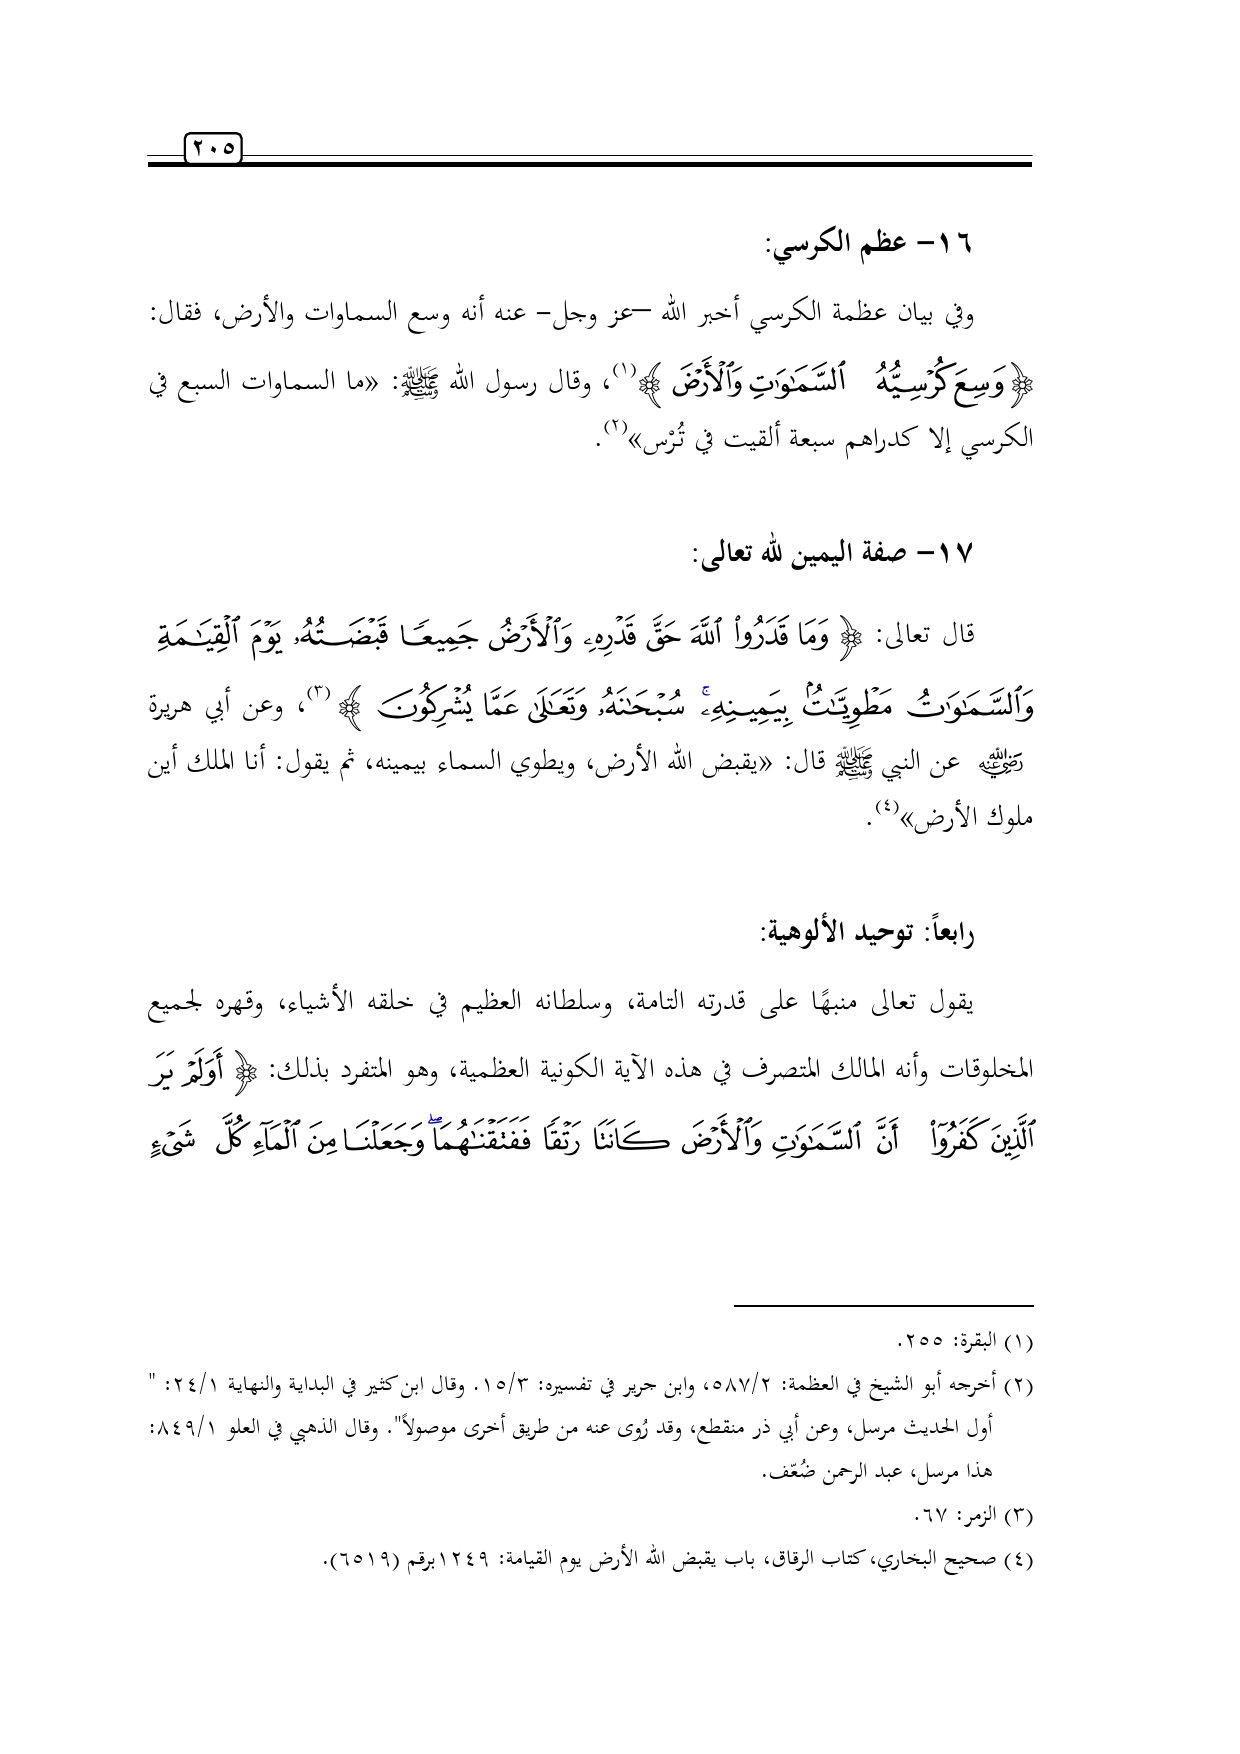 ٢٠٥
١٦– عظم الكرسي:
وفي بيان عظمة الكرسي أخبر الله –عز وجل– عنه أنه وسع السماوات والأرض، فقال:
﴿وَسِعَ كُرْسِيُّهُ ٱلسَّمَٰوَٰتِ وَٱلْأَرْضَ﴾(١)، وقال رسول الله ﷺ: «ما السماوات السبع في
الكرسي إلا كدراهم سبعة ألقيت في تُرْس»(٢).
١٧– صفة اليمين لله تعالى:
قال تعالى: ﴿وَمَا قَدَرُواْ ٱللَّهَ حَقَّ قَدْرِهِۦ وَٱلْأَرْضُ جَمِيعًا قَبْضَتُهُۥ يَوْمَ ٱلْقِيَٰمَةِ
وَٱلسَّمَٰوَٰتُ مَطْوِيَّٰتٌۢ بِيَمِينِهِۦۚ سُبْحَٰنَهُۥ وَتَعَٰلَىٰ عَمَّا يُشْرِكُونَ﴾(٣)، وعن أبي هريرة
رضي الله عنه عن النبي ﷺ قال: «يقبض الله الأرض، ويطوي السماء بيمينه، ثم يقول: أنا الملك أين
ملوك الأرض»(٤).
رابعاً: توحيد الألوهية:
يقول تعالى منبهًا على قدرته التامة، وسلطانه العظيم في خلقه الأشياء، وقهره لجميع
المخلوقات وأنه المالك المتصرف في هذه الآية الكونية العظمية، وهو المتفرد بذلك: ﴿أَوَلَمْ يَرَ
ٱلَّذِينَ كَفَرُوٓاْ أَنَّ ٱلسَّمَٰوَٰتِ وَٱلْأَرْضَ كَانَتَا رَتْقًا فَفَتَقْنَٰهُمَاۖ وَجَعَلْنَا مِنَ ٱلْمَآءِ كُلَّ شَىْءٍ
(١) البقرة: ٢٥٥.
(٢) أخرجه أبو الشيخ في العظمة: ٥٨٧/٢، وابن جرير في تفسيره: ١٥/٣. وقال ابن كثير في البداية والنهاية ٢٤/١: "
أول الحديث مرسل، وعن أبي ذر منقطع، وقد رُوى عنه من طريق أخرى موصولاً". وقال الذهبي في العلو ٨٤٩/١:
هذا مرسل، عبد الرحمن ضُعّف.
(٣) الزمر: ٦٧.
(٤) صحيح البخاري، كتاب الرقاق، باب يقبض الله الأرض يوم القيامة: ١٢٤٩برقم (٦٥١٩).